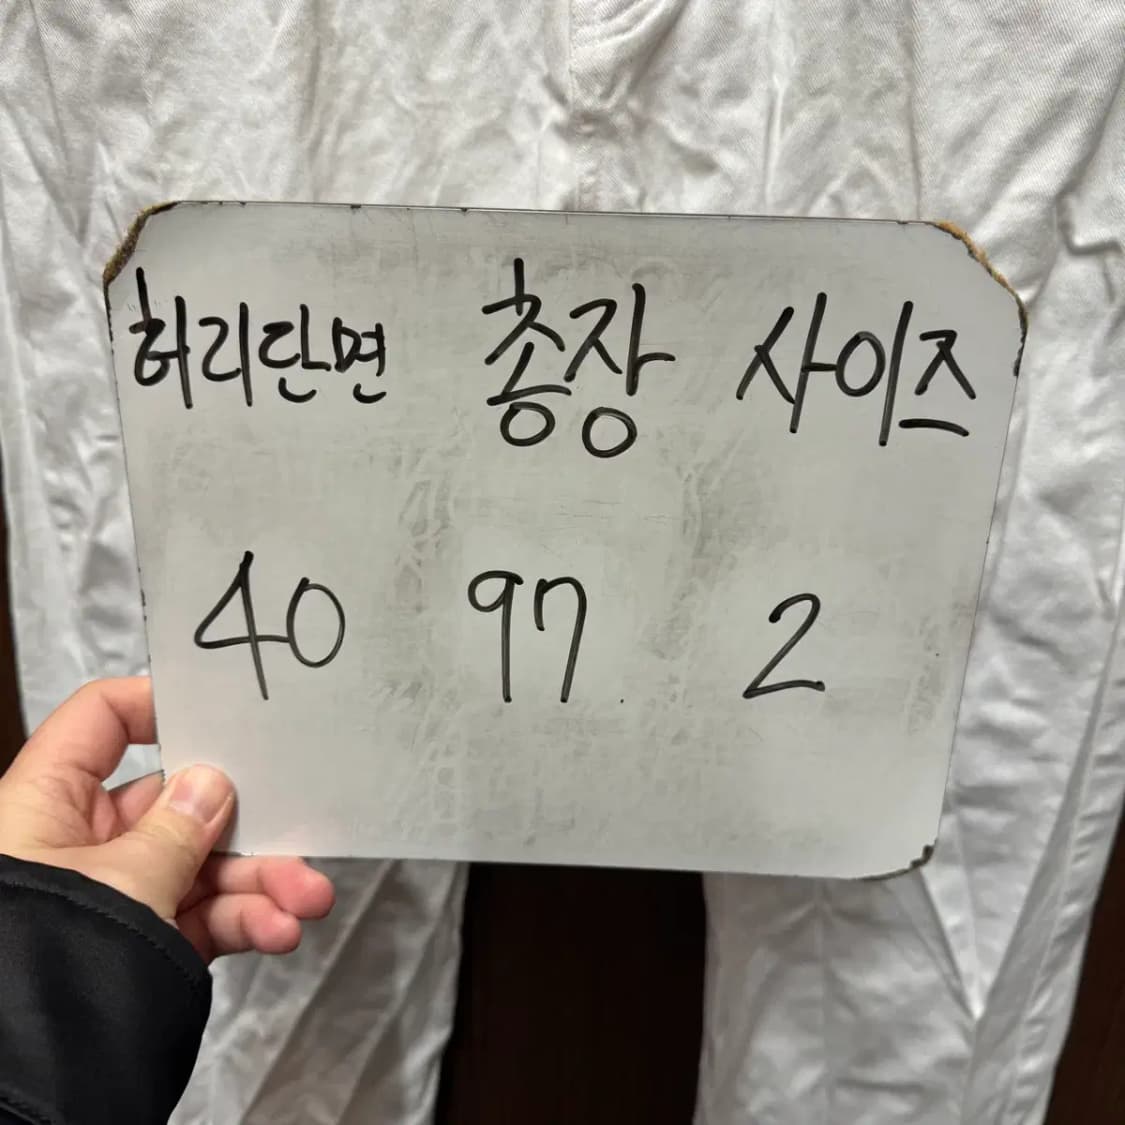 허리단면 총장 사이즈
40 97 2